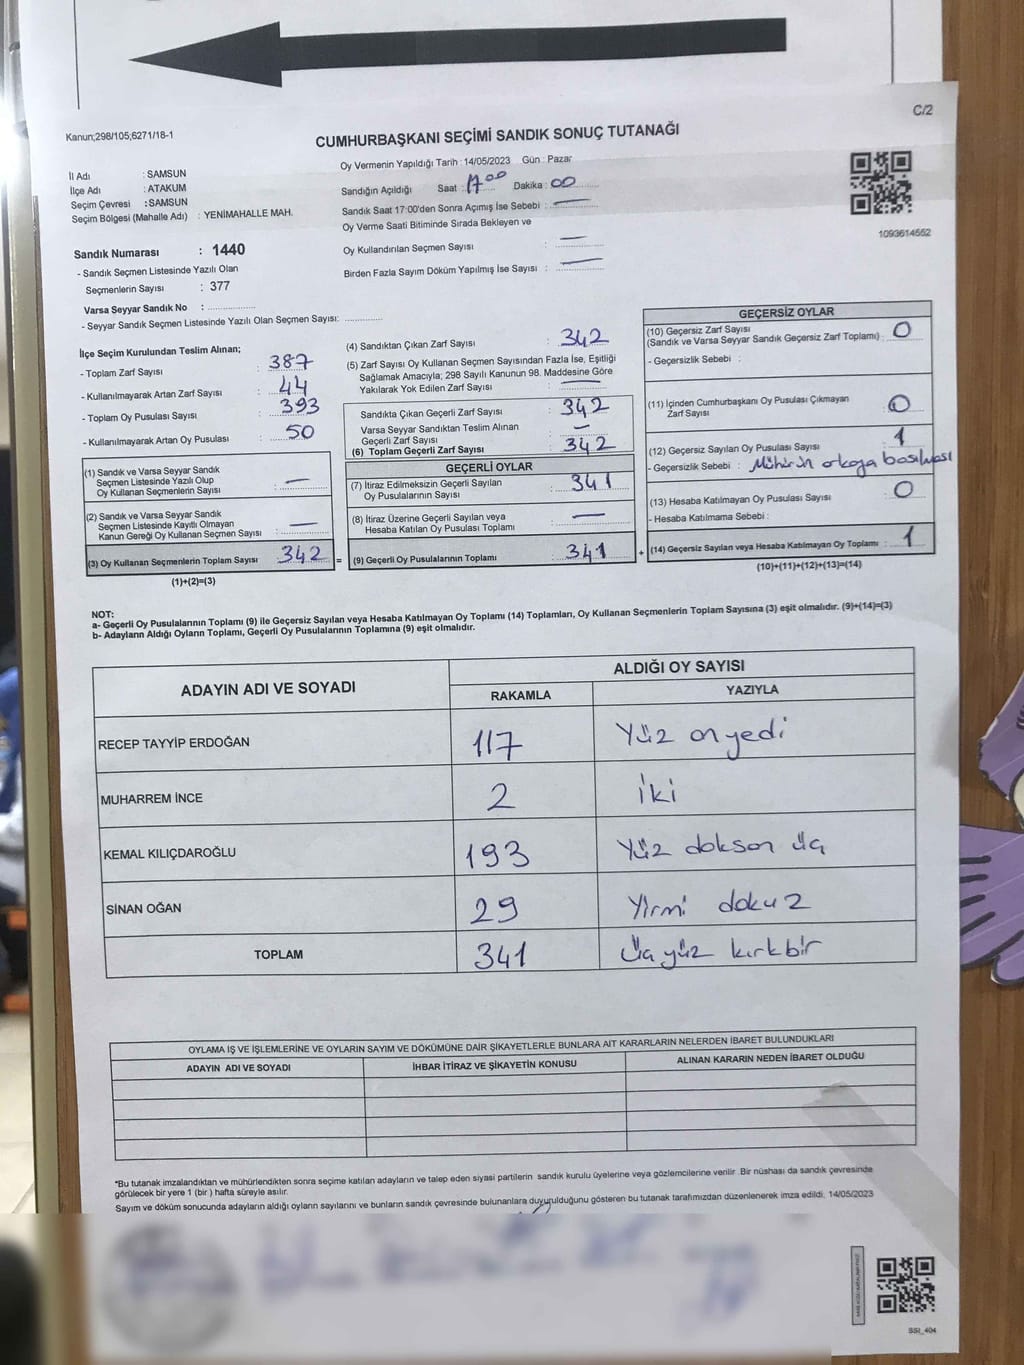 C/2
Kanun;298/105;6271/18-1
CUMHURBAŞKANI SEÇİMİ SANDIK SONUÇ TUTANAĞI
Oy Vermenin Yapıldığı Tarih : 14/05/2023 Gün : Pazar
İl Adı : SAMSUN
İlçe Adı : ATAKUM
Seçim Çevresi : SAMSUN
Seçim Bölgesi (Mahalle Adı) : YENİMAHALLE MAH.
Sandığın Açıldığı Saat : 17.00 Dakika : 00
Sandık Saat 17:00'den Sonra Açımış İse Sebebi : —
Oy Verme Saati Bitiminde Sırada Bekleyen ve
Oy Kullandırılan Seçmen Sayısı : —
Birden Fazla Sayım Döküm Yapılmış İse Sayısı : —
1093614552
Sandık Numarası : 1440
- Sandık Seçmen Listesinde Yazılı Olan
Seçmenlerin Sayısı : 377
Varsa Seyyar Sandık No : ................
- Seyyar Sandık Seçmen Listesinde Yazılı Olan Seçmen Sayısı: .............
İlçe Seçim Kurulundan Teslim Alınan;
- Toplam Zarf Sayısı : 387
- Kullanılmayarak Artan Zarf Sayısı : 44
- Toplam Oy Pusulası Sayısı : 393
- Kullanılmayarak Artan Oy Pusulası : 50
(1) Sandık ve Varsa Seyyar Sandık
Seçmen Listesinde Yazılı Olup
Oy Kullanan Seçmenlerin Sayısı : —
(2) Sandık ve Varsa Seyyar Sandık
Seçmen Listesinde Kayıtlı Olmayan
Kanun Gereği Oy Kullanan Seçmen Sayısı : —
(3) Oy Kullanan Seçmenlerin Toplam Sayısı : 342 =
(1)+(2)=(3)
(4) Sandıktan Çıkan Zarf Sayısı : 342
(5) Zarf Sayısı Oy Kullanan Seçmen Sayısından Fazla İse, Eşitliği
Sağlamak Amacıyla; 298 Sayılı Kanunun 98. Maddesine Göre
Yakılarak Yok Edilen Zarf Sayısı : —
Sandıkta Çıkan Geçerli Zarf Sayısı : 342
Varsa Seyyar Sandıktan Teslim Alınan
Geçerli Zarf Sayısı : —
(6) Toplam Geçerli Zarf Sayısı : 342
GEÇERLİ OYLAR
(7) İtiraz Edilmeksizin Geçerli Sayılan
Oy Pusulalarının Sayısı : 341
(8) İtiraz Üzerine Geçerli Sayılan veya
Hesaba Katılan Oy Pusulası Toplamı : —
(9) Geçerli Oy Pusulalarının Toplamı : 341 +
GEÇERSİZ OYLAR
(10) Geçersiz Zarf Sayısı
(Sandık ve Varsa Seyyar Sandık Geçersiz Zarf Toplamı) : 0
- Geçersizlik Sebebi :
(11) İçinden Cumhurbaşkanı Oy Pusulası Çıkmayan
Zarf Sayısı : 0
(12) Geçersiz Sayılan Oy Pusulası Sayısı : 1
- Geçersizlik Sebebi : Mührün arkaya basılması
(13) Hesaba Katılmayan Oy Pusulası Sayısı : 0
- Hesaba Katılmama Sebebi :
(14) Geçersiz Sayılan veya Hesaba Katılmayan Oy Toplamı : 1
(10)+(11)+(12)+(13)=(14)
NOT:
a- Geçerli Oy Pusulalarının Toplamı (9) ile Geçersiz Sayılan veya Hesaba Katılmayan Oy Toplamı (14) Toplamları, Oy Kullanan Seçmenlerin Toplam Sayısına (3) eşit olmalıdır. (9)+(14)=(3)
b- Adayların Aldığı Oyların Toplamı, Geçerli Oy Pusulalarının Toplamına (9) eşit olmalıdır.
ADAYIN ADI VE SOYADI
ALDIĞI OY SAYISI
RAKAMLA YAZIYLA
RECEP TAYYİP ERDOĞAN 117 Yüz on yedi
MUHARREM İNCE 2 iki
KEMAL KILIÇDAROĞLU 193 Yüz doksan üç
SİNAN OĞAN 29 Yirmi dokuz
TOPLAM 341 Üç yüz kırkbir
OYLAMA İŞ VE İŞLEMLERİNE VE OYLARIN SAYIM VE DÖKÜMÜNE DAİR ŞİKAYETLERLE BUNLARA AİT KARARLARIN NELERDEN İBARET BULUNDUKLARI
ADAYIN ADI VE SOYADI İHBAR İTİRAZ VE ŞİKAYETİN KONUSU ALINAN KARARIN NEDEN İBARET OLDUĞU
*Bu tutanak imzalandıktan ve mühürlendikten sonra seçime katılan adayların ve talep eden siyasi partilerin sandık kurulu üyelerine veya gözlemcilerine verilir. Bir nüshası da sandık çevresinde
görülecek bir yere 1 (bir) hafta süreyle asılır.
Sayım ve döküm sonucunda adayların aldığı oyların sayılarını ve bunların sandık çevresinde bulunanlara duyurulduğunu gösteren bu tutanak tarafımızdan düzenlenerek imza edildi. 14/05/2023
SSI_404